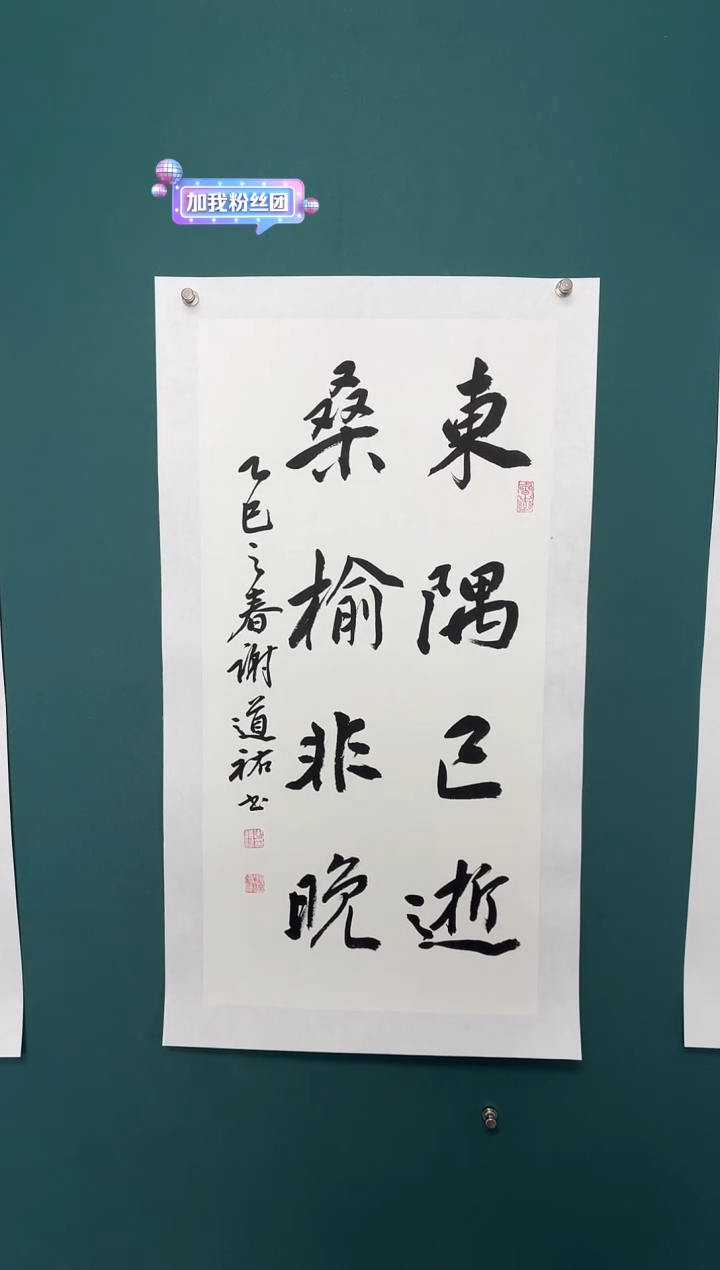 加我粉丝团
東隅已逝
桑榆非晚
乙巳之春谢道祐书